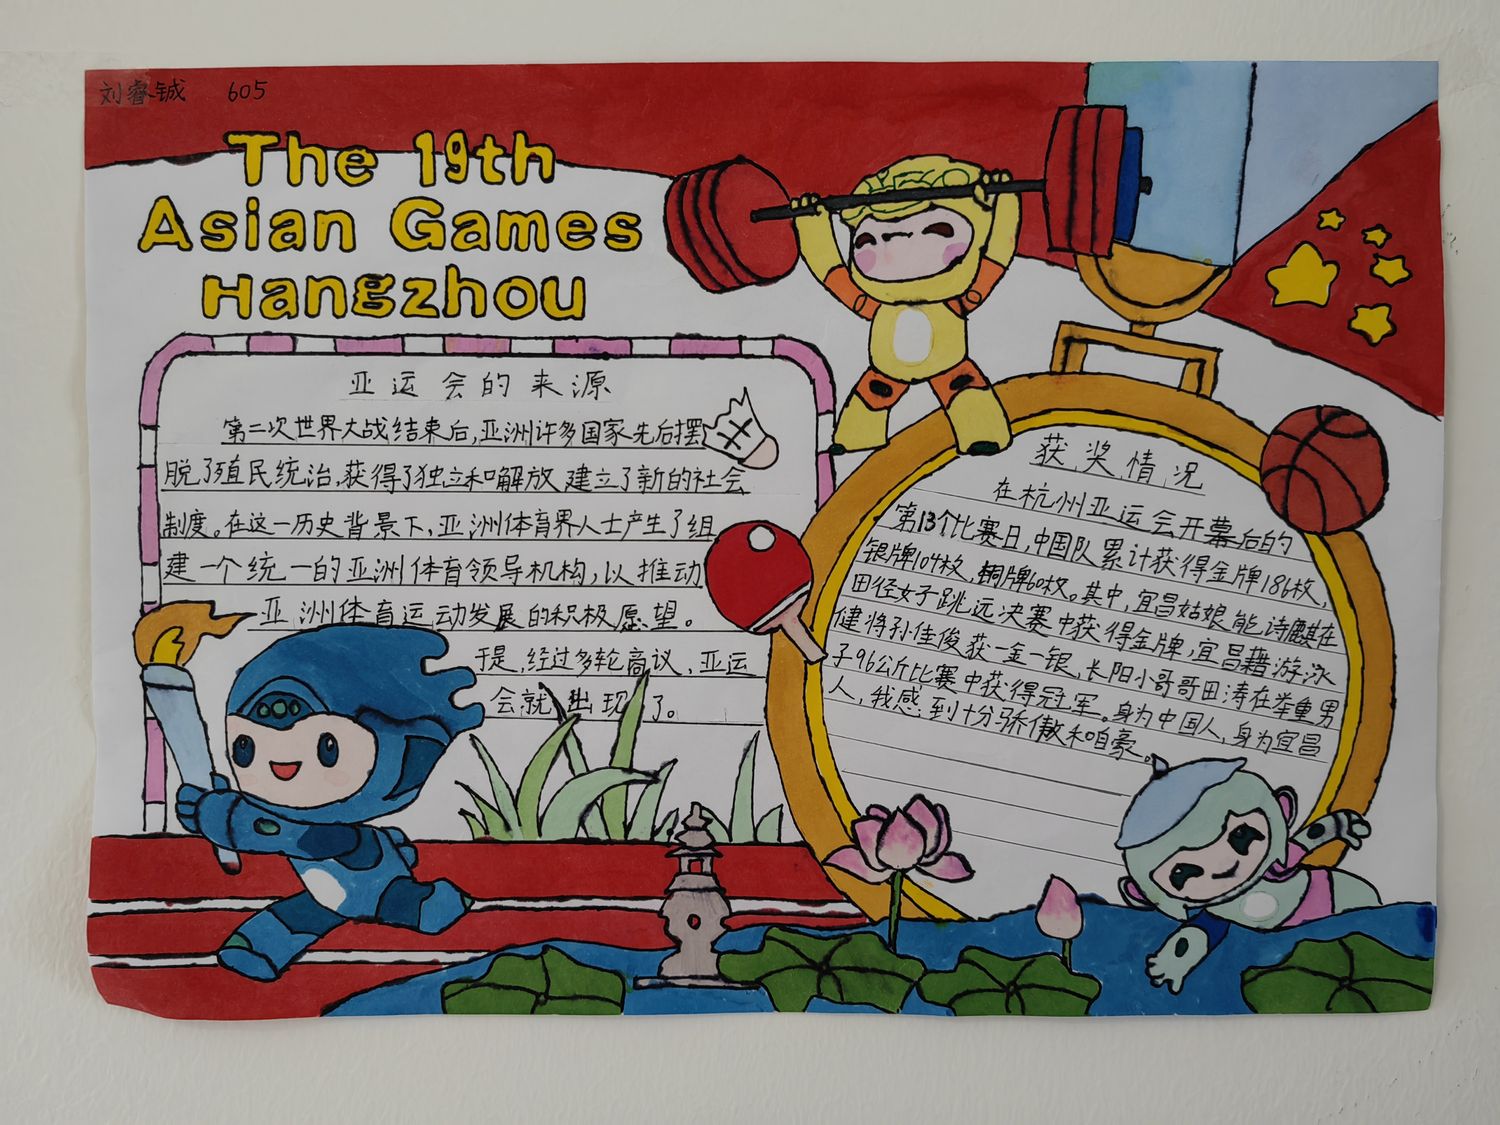 刘睿铖 605
The 19th
Asian Games
Hangzhou
亚运会的来源
第二次世界大战结束后,亚洲许多国家先后摆
脱了殖民统治,获得了独立和解放 建立了新的社会
制度。在这一历史背景下,亚洲体育界人士产生了组
建一个统一的亚洲体育领导机构,以推动
亚洲体育运动发展的积极愿望。
于是,经过多轮商议,亚运
会就出现了。
获奖情况
在杭州亚运会开幕后的
第13个比赛日,中国队累计获得金牌186枚,
银牌104枚,铜牌60枚。其中,宜昌姑娘熊诗麒在
田径女子跳远决赛中获得金牌,宜昌籍游泳
健将孙佳俊获一金一银,长阳小哥哥田涛在举重男
子96公斤比赛中获得冠军。身为中国人,身为宜昌
人,我感到十分骄傲和自豪。